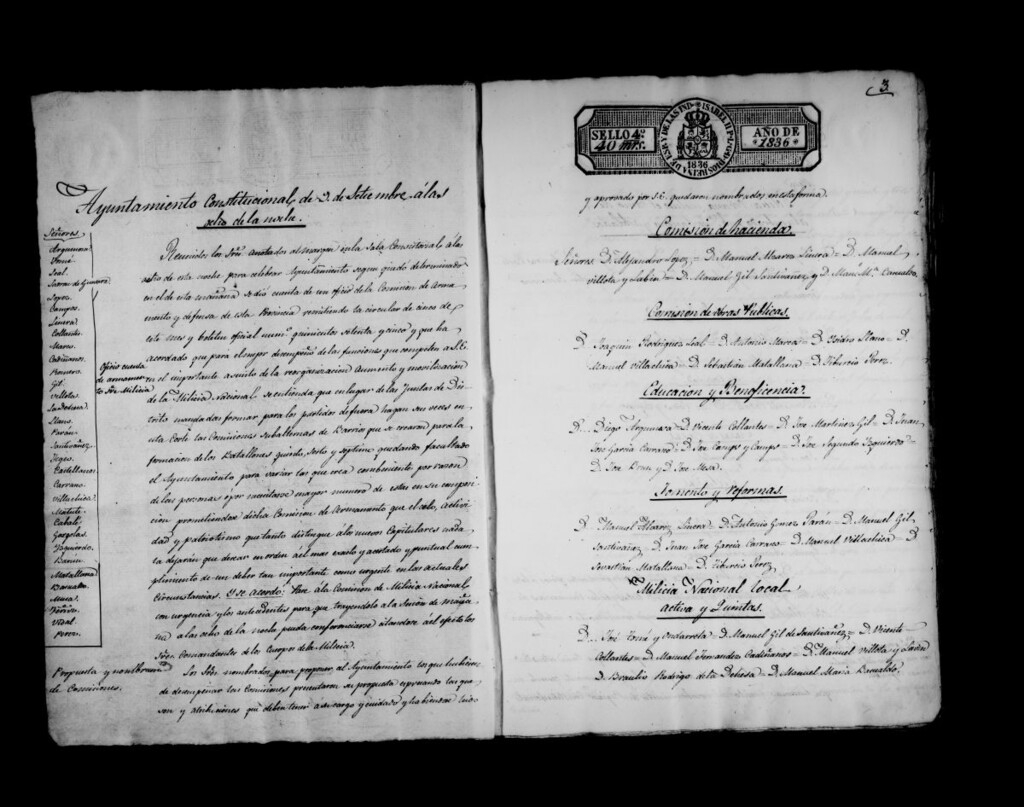 Ayuntamiento Constitucional, de 9. de Setiembre á las
ocho de la noche.
Señores
Argumosa
Tomé
Leal
Lopez
Campos
Sinera
Collantes
Marca
Cadiñanos
Romero
Gil
Villota
La Dehesa
Llano
Parán
Santivañez
Castellanos
Carrasco
Villachica
Matute
Cabali
Gargolas
Yzquierdo
Matallana
Barualdo
Mesa
Vidal
Perez
Oficio cuenta
de armamen
to Sre. Milicia
Reunidos los Sres. anotados al margen en la Sala Consistorial á las
ocho de esta noche para celebrar Ayuntamiento segun quedó determinado
en el de esta mañana se dió cuenta de un oficio de la Comision de Arma
mento y defensa de esta Provincia remitiendo la circular de cinco de
este mes y boletin oficial num.º quinientos setenta y cinco y que ha
acordado que para el mejor desempeño de las funciones que competen a S.E.
en el importante asunto de la reorganizacion Aumento y movilizacion
de la Milicia Nacional, se entienda que en lugar de las Juntas de Dis
trito mandadas formar para los partidos de fuera hagan sus veces en
esta Corte las Comisiones subalternas de Barrio que se crearon para la
formacion de los Batallones quinto, sesto y septimo quedando facultado
el Ayuntamiento para variar las que crea combeniente, por razon
de las personas o por necesitarse mayor numero de estas en su composi
cion prometiendose dicha Comision de Armamento que el celo, activi
dad y patriotismo que tanto distingue á los nuevos Capitulares nada
la dejarán que desear en orden al mas exacto y acertado y puntual cum
plimiento de un deber tan importante como urgente en las actuales
circunstancias. Y se acordó: Pase á la Comision de Milicia Nacional,
con urgencia y los antecedentes para que trayendolo á la Sesion de maña
na a las ocho de la noche pueda conferenciarse al efecto los
Sres. Comandantes de los Cuerpos de la Milicia.
Propuesta y nombram.to
de Comisiones.
Los Sres. nombrados, para proponer al Ayuntamiento los que hubieren
de desempeñar las Comisiones presentaron su propuesta espresando las que
son y atribuciones que deben tener a su cargo y cuidado y habiendose leido
3
SELLO 4.º
40 mrs.
ISABEL II P. L. G. DE DIOS REINA DE ESP. Y DE LAS IND.
1836
AÑO DE
1836
y aprovado por S.E. quedaron nombrados en esta forma.
Comision de hacienda.
Señores D. Alejandro Lopez = D. Manuel Alvarez Sinera = D. Manuel
Villota y Labin = D. Manuel Gil Santivañez y D. Man. M.ª
Comision de obras Publicas.
D. Joaquin Rodriguez Leal = D. Antonio Marca = D. Ysidro Llano = D.
Manuel Villachica = D. Sebastian Matallana = D. Tiburcio Perez.
Educacion y Beneficencia.
D. Diego Argumosa = D. Vicente Collantes = D. Jose Martinez Gil = D. Juan
Jose Garcia Carrasco = D. Jose Campo y Campo = D. Jose Segundo Izquierdo =
D. Jose y D. Jose Mesa.
Fomento y reformas.
D. Manuel Alvarez Sinera = D. Antonio Gomez Parán = D. Manuel Gil
Santivañez = D. Juan Jose Garcia Carrasco = D. Manuel Villachica = D.
Sevastian Matallana = D. Tiburcio Perez
Milicia Nacional local,
activa y Quintas.
D. José Tomé y Ondarreta = D. Manuel Gil de Santivañez = D. Vicente
Collantes = D. Manuel Fernandez Cadiñanos = D. Manuel Villota y Lavin
D. Braulio Rodrigo de la Dehesa = D. Manuel Maria Barualdo.